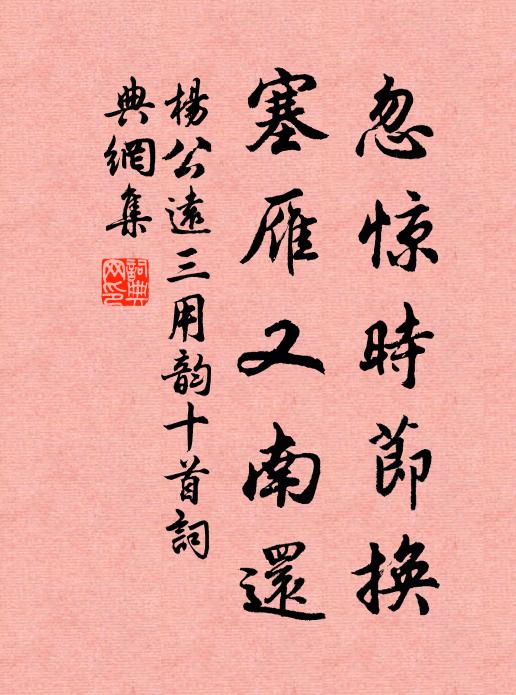 忽惊時節換
塞雁又南還
楊公遠三用韵十首詞
典網集
詞典
网印